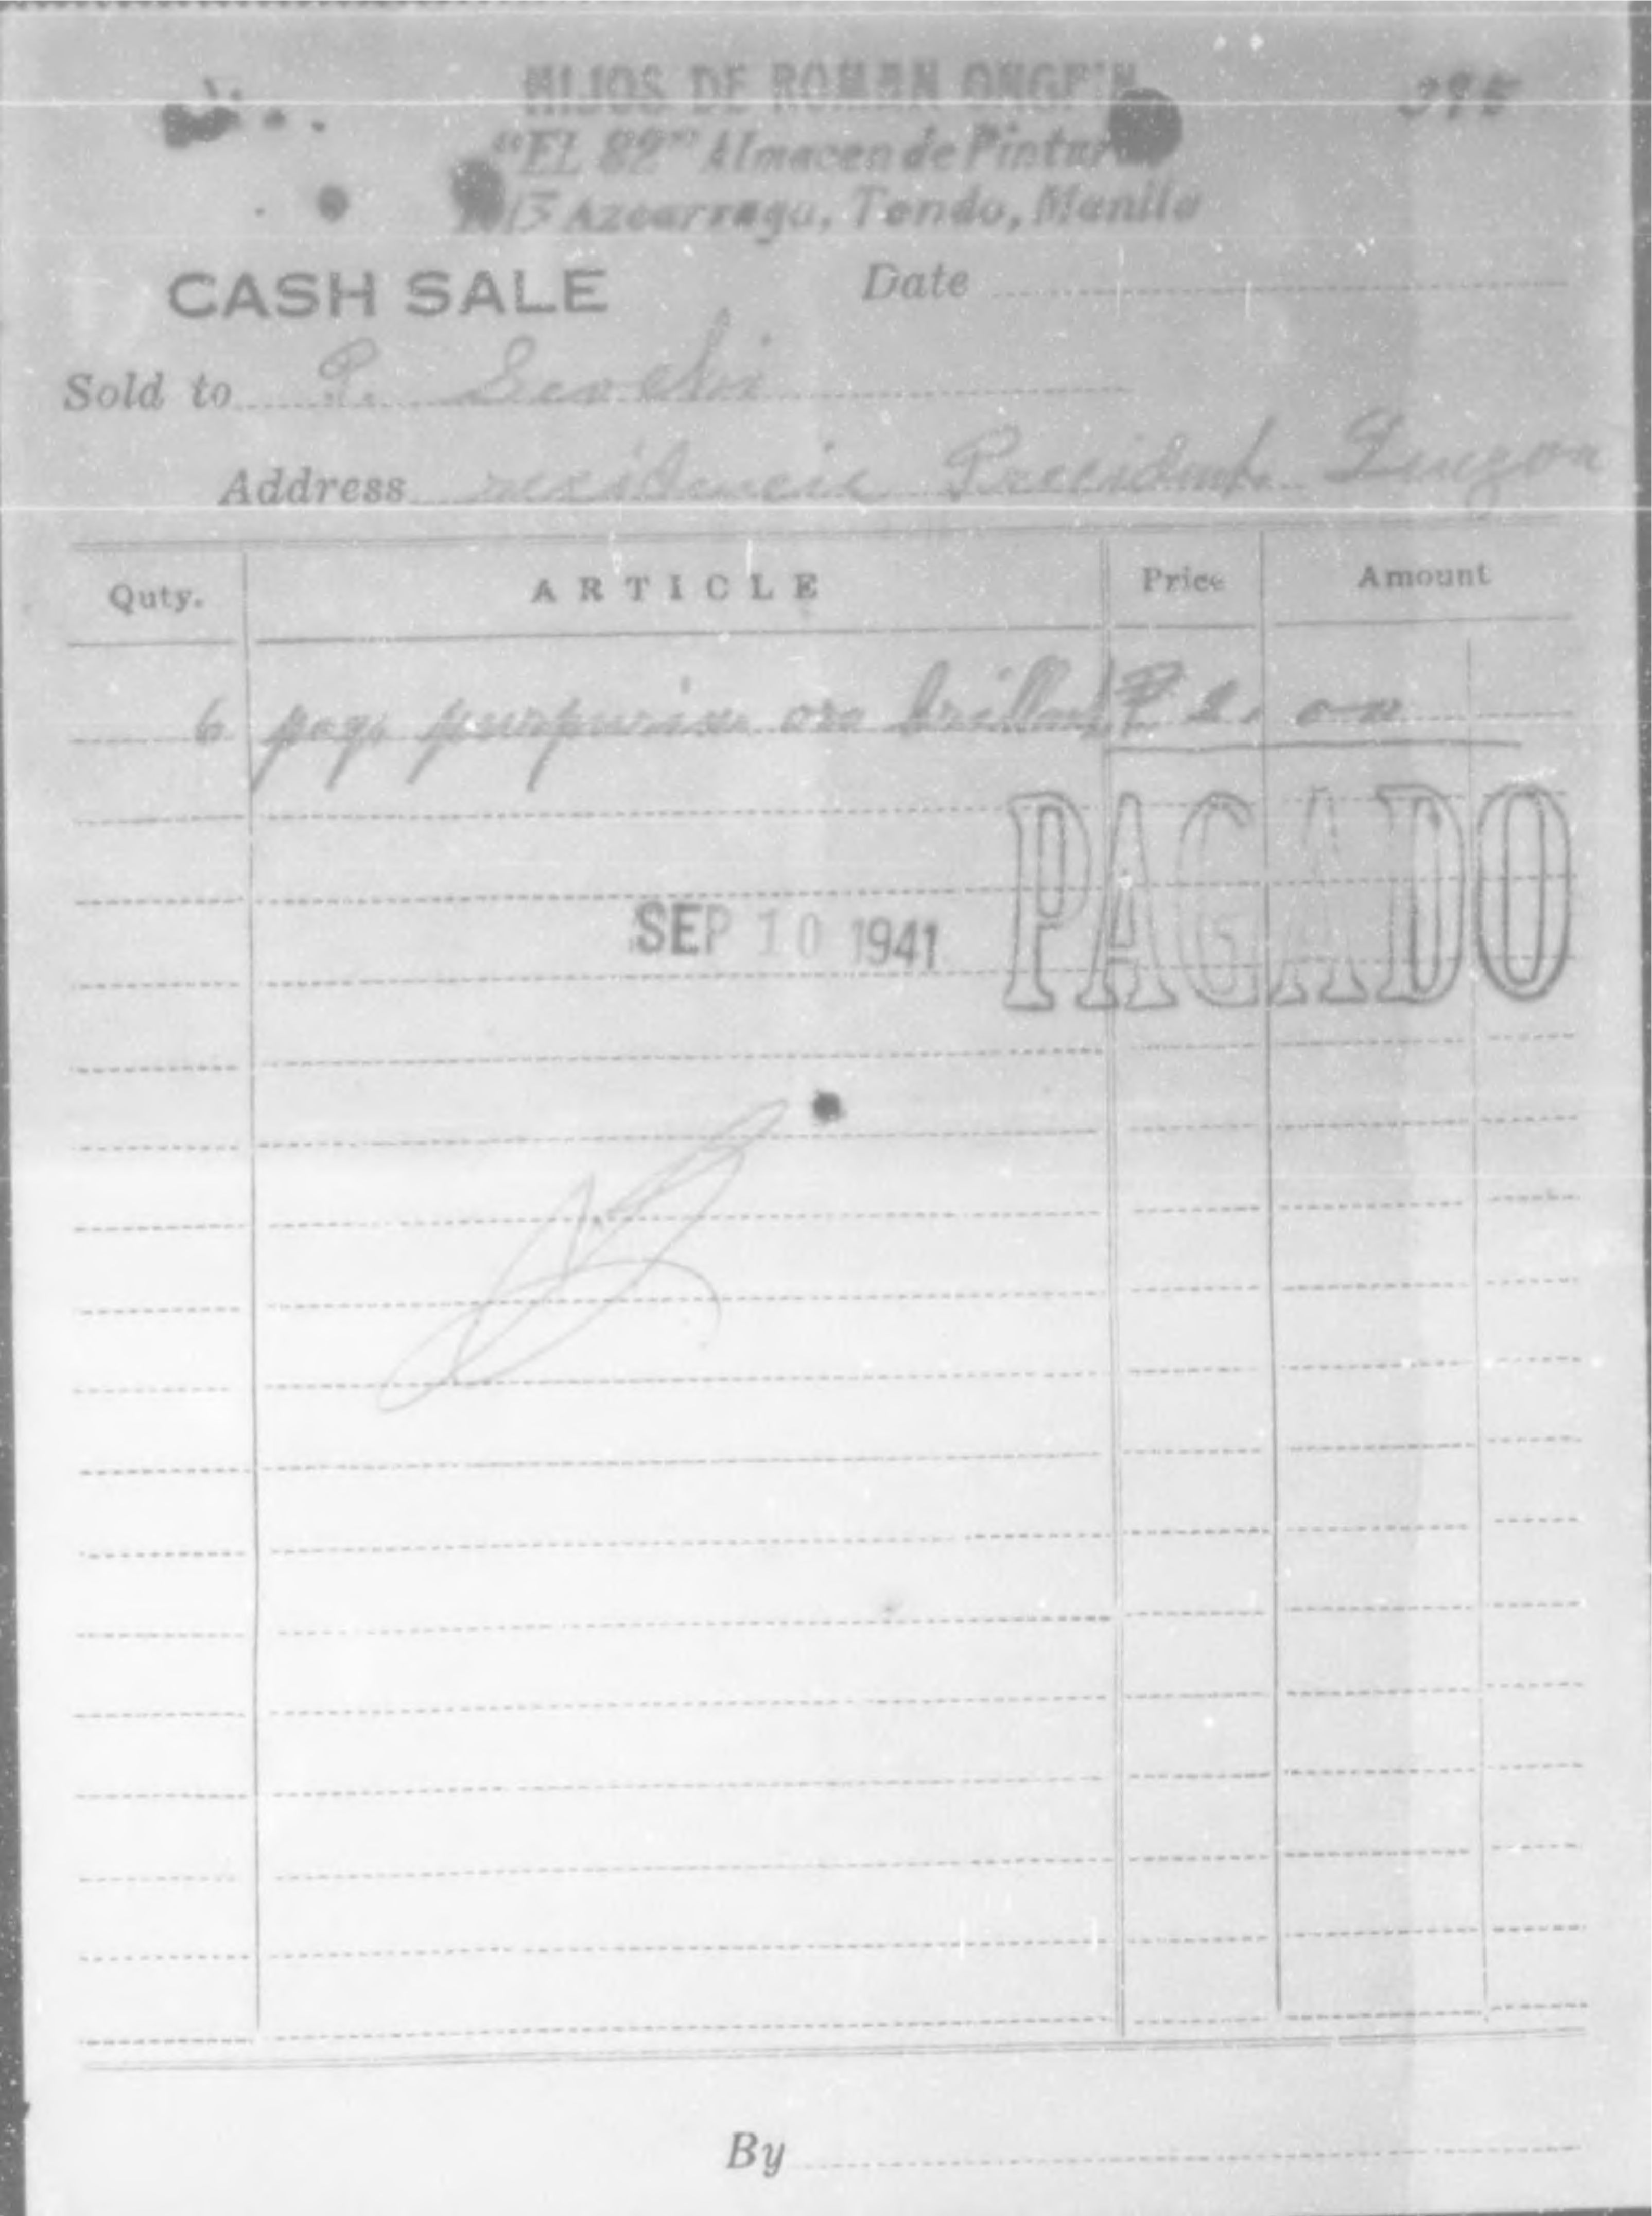 HIJOS DE ROMAN ONGPIN
"EL 82" Almacen de Pinturas
Azcarraga, Tondo, Manila
CASH SALE Date
Sold to P.
Address residencia President Quezon
Quty. ARTICLE Price Amount
6 paq. purpurina oro brillant ₱
SEP 10 1941 PAGADO
By